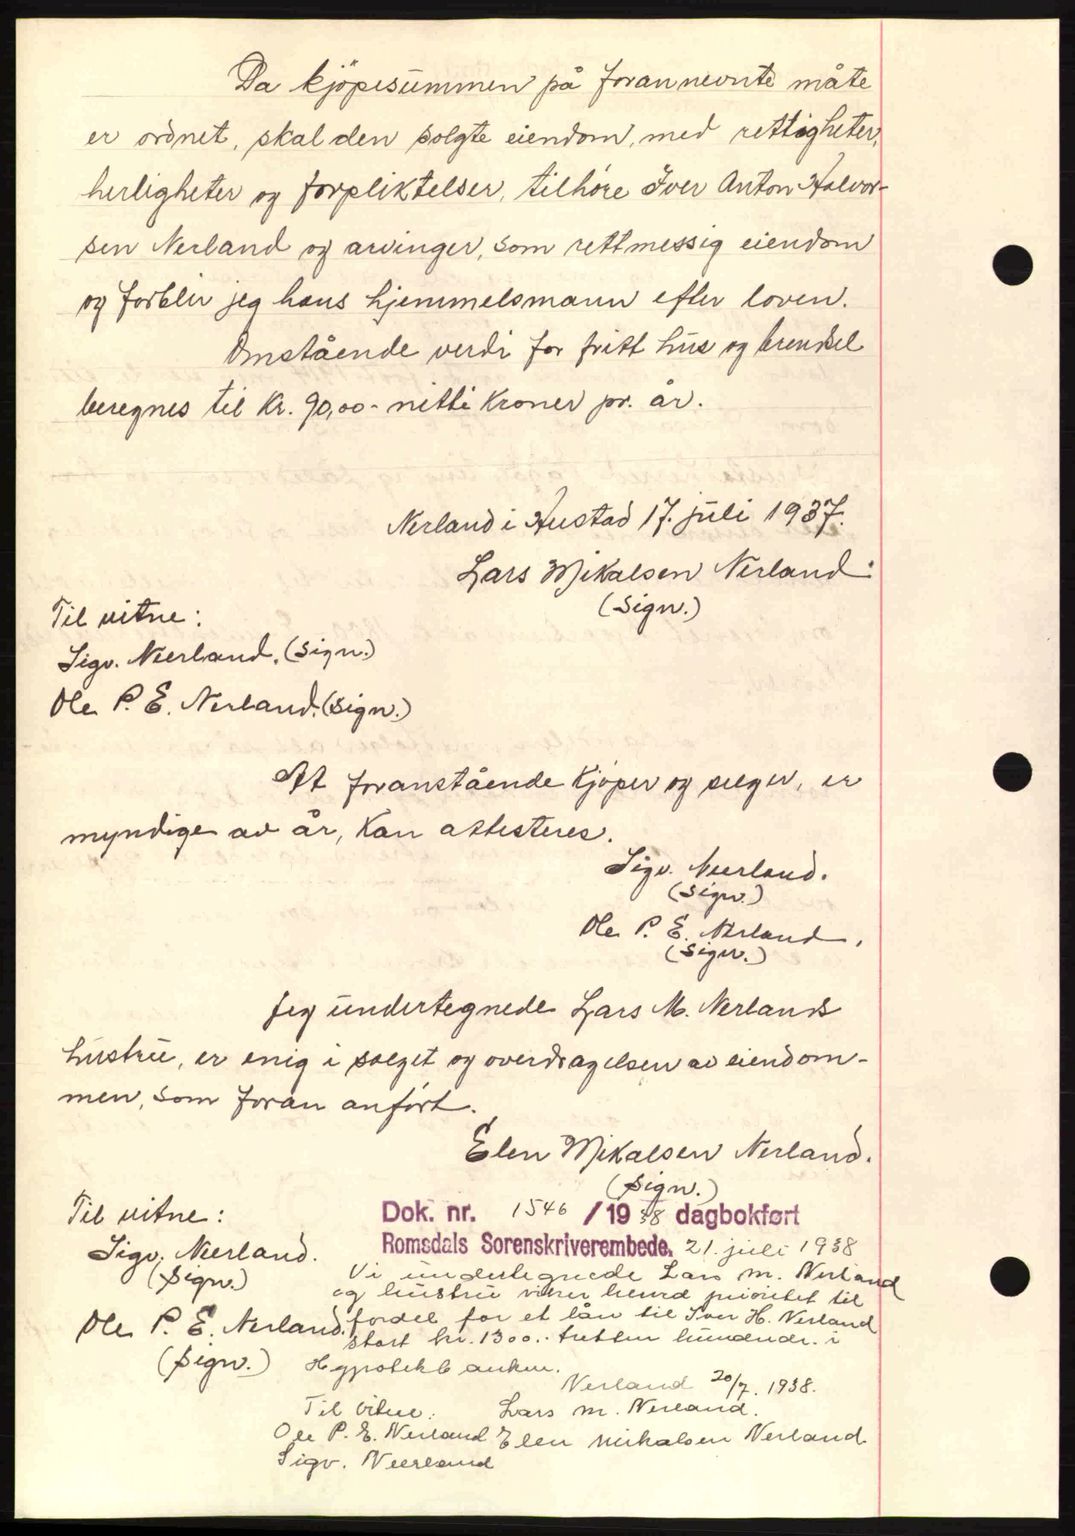 Da kjöpesummen på forannevnte måte
er ordnet, skal den solgte eiendom, med rettigheter,
herligheter og forpliktelser, tilhøre Iver Anton Halvor-
sen Nerland og arvinger, som rettmessig eiendom
og forblir jeg hans hjemmelsmann efter loven.
Omstående verdi for fritt hus og brensel
beregnes til Kr. 90,00 - nitti Kroner pr. år.
Nerland i Hustad 17. juli 1937.
Lars Mikalsen Nerland.
(Sign.)
Til vitne:
Sigv. Neerland. (Sign.)
Ole P. E. Nerland. (Sign.)
At foranstående kjöper og selger, er
myndige av år, kan attesteres.
Sigv. Neerland.
(Sign.)
Ole P. E. Nerland.
(Sign.)
Jeg undertegnede Lars M. Nerlands
hustru, er enig i salget og overdragelsen av eiendom-
men, som foran anført.
Elen Mikalsen Nerland.
(Sign.)
Til vitne:
Sigv. Neerland.
(Sign.)
Ole P. E. Nerland.
(Sign.)
Dok. nr. 1546 / 1938 dagbokført
Romsdals Sorenskriverembede. 21. juli 1938
Vi undertegnede Lars M. Nerland
og hustru viker herved prioritet til
fordel for et lån til Iver H. Nerland
stort kr. 1300.- tretten hundredr. i
Hypotekbanken.
Nerland 20/7. 1938.
Til vitne: Lars M. Nerland.
Ole P. E. Nerland Elen Mikalsen Nerland
Sigv. Neerland